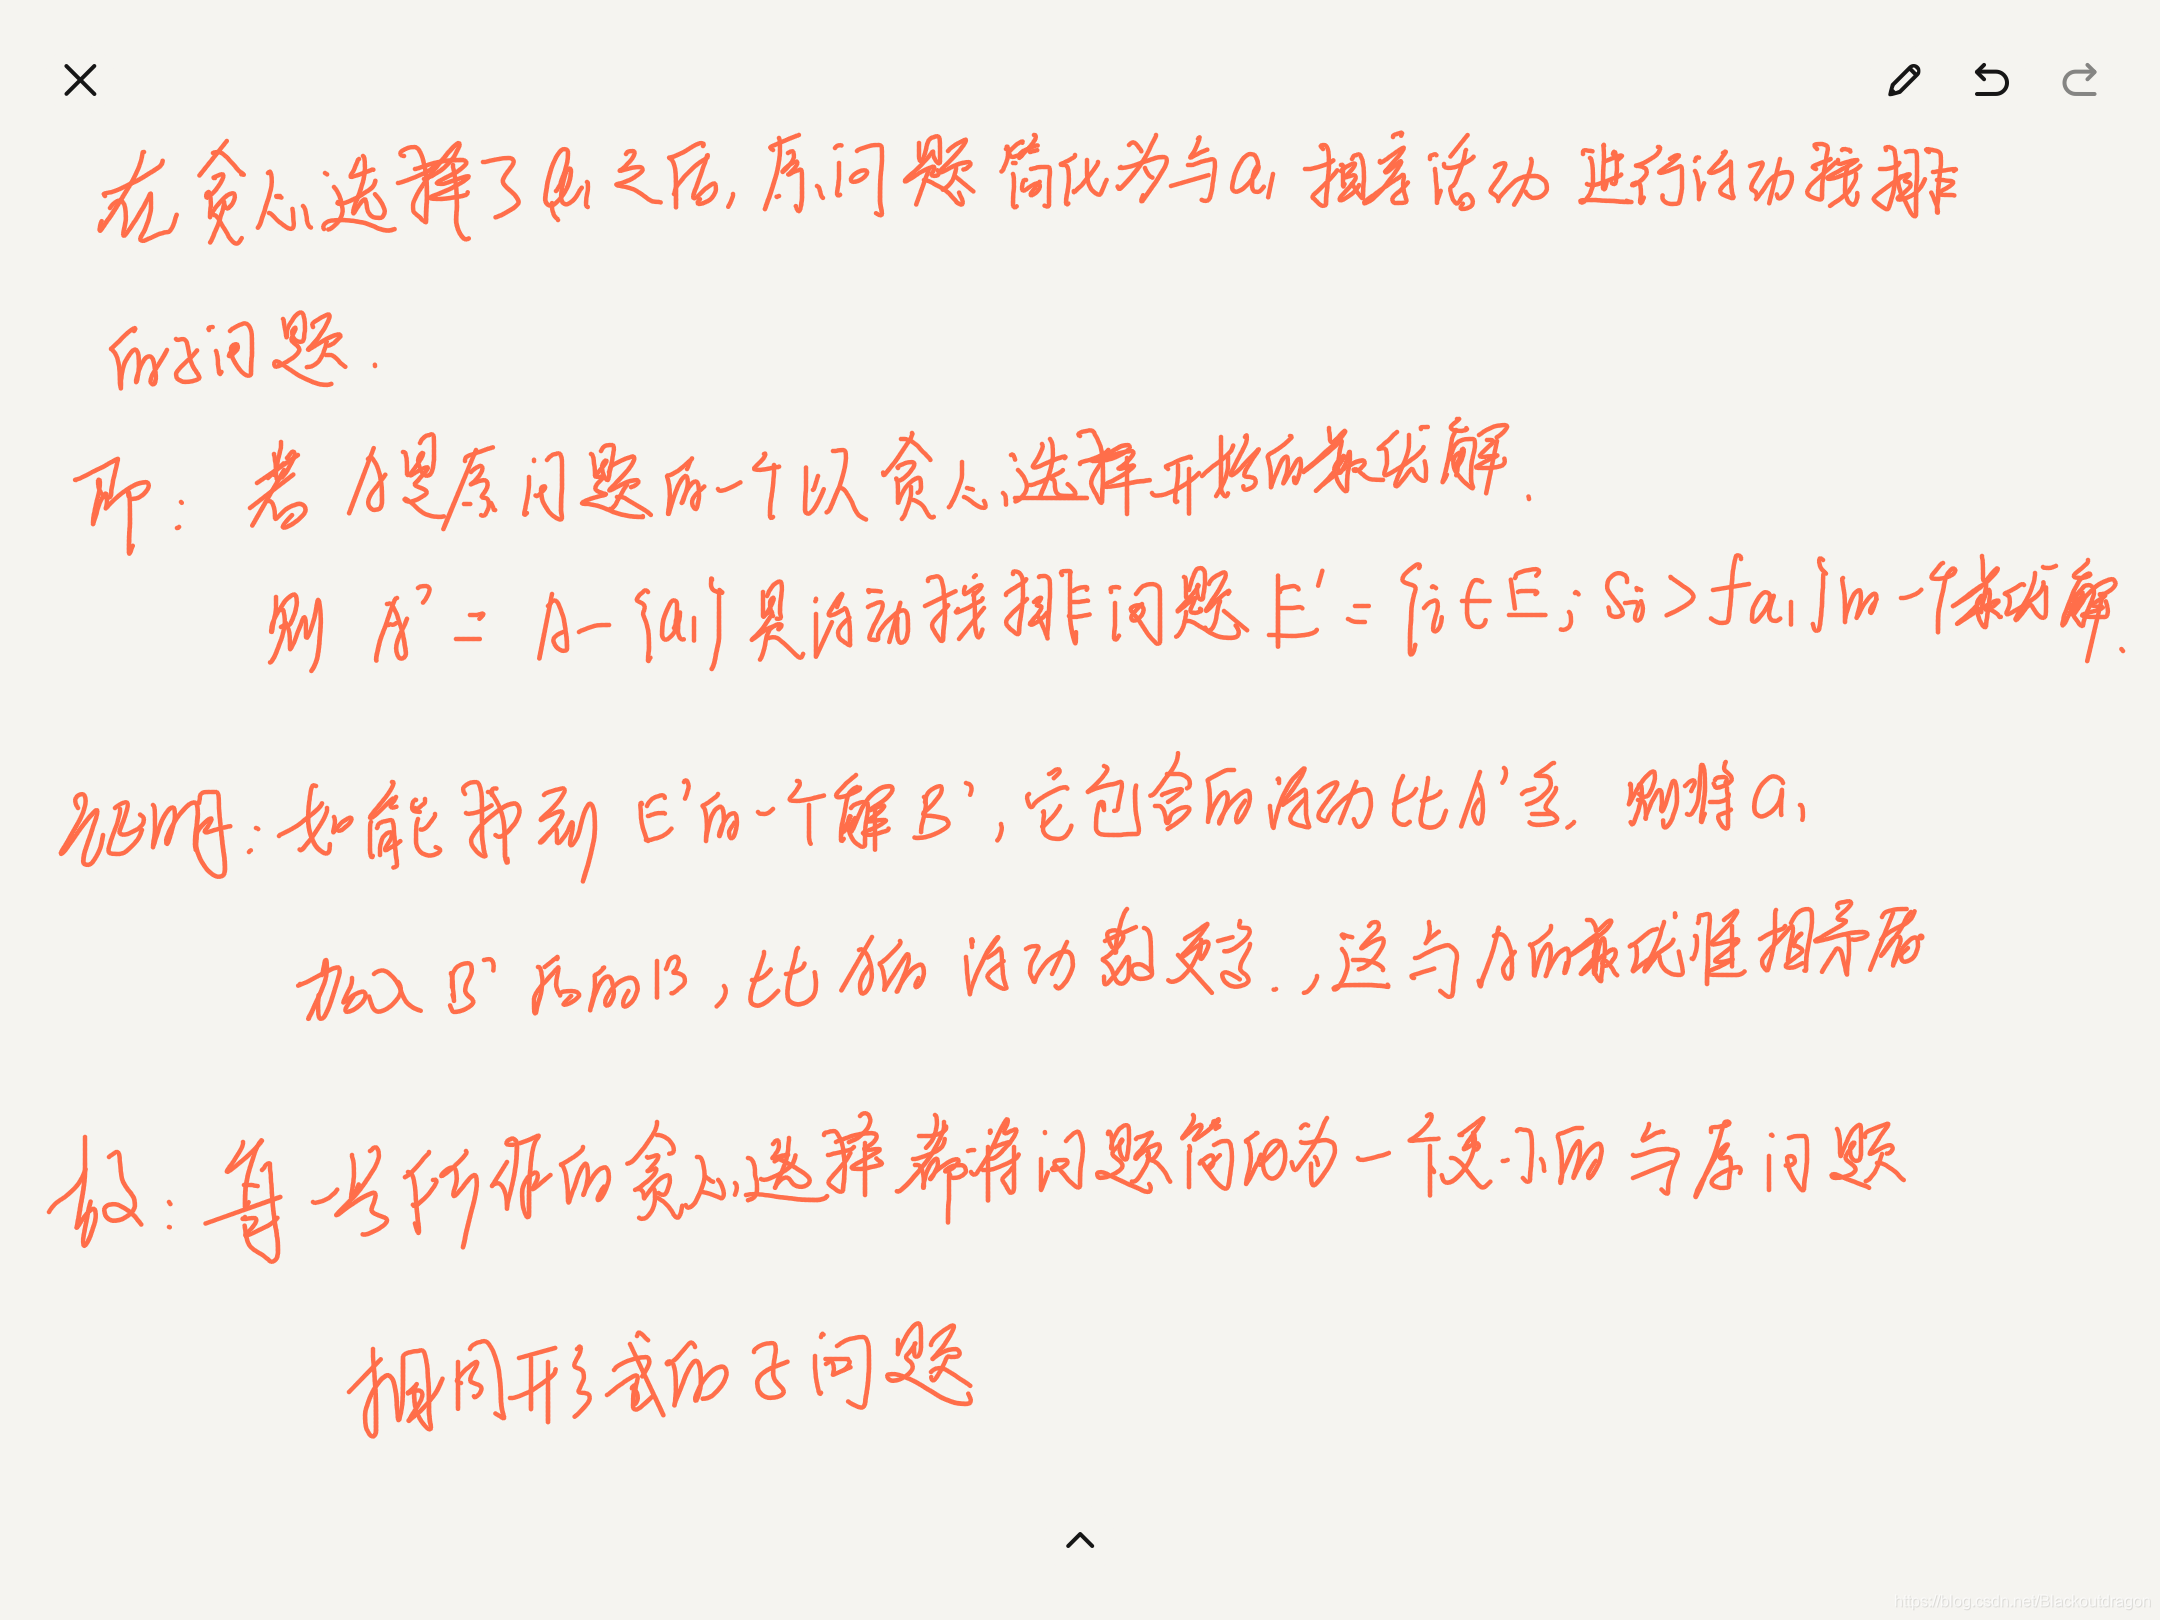 在贪心选择了a₁之后,原问题简化为与a₁相容活动进行活动安排
的子问题.
即: 若A是原问题的一个以贪心选择开始的最优解.
则 A' = A-{a₁}是活动安排问题E'={i∈E; Si>fa₁}的一个最优解.
证明: 如能找到E'的一个解B',它包含的活动比A'多,则将a₁
加入B'后的B,比A的活动数更多.,这与A的最优性相矛盾
故: 每一步所作的贪心选择都将问题简化为一个更小的与原问题
相同形式的子问题
https://blog.csdn.net/Blackoutdragon